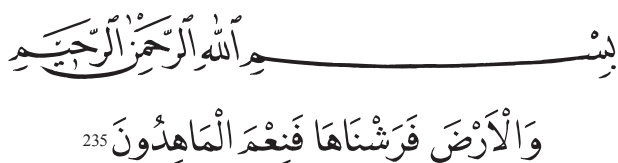 بِسْمِ اللّٰهِ الرَّحْمٰنِ الرَّحٖيمِ
وَالْاَرْضَ فَرَشْنَاهَا فَنِعْمَ الْمَاهِدُونَ 235